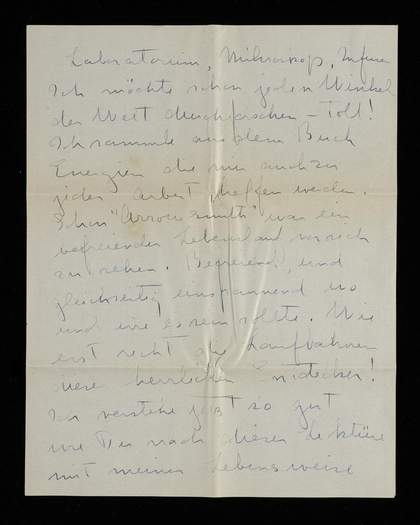 Laboratorium, Mikroskop,
Ich möchte schon jeden Winkel
der Welt durchforschen – Toll!
Ich sammle aus dem Buch
Energien die mir auch zu
jeder Arbeit helfen werden.
Schon "Arrowsmith" war ein
befreiender Lebenslauf vor sich
zu sehen. Befreiend, und
gleichzeitig einspannend wo
und wie es sein sollte. Wie
erst recht die Laufbahnen
dieser herrlichen Entdecker!
Ich verstehe jetzt so gut
wie Du nach dieser Lektüre
mit meiner Lebensweise